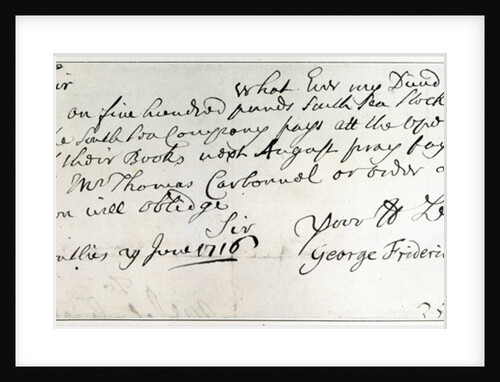 ir
what Ever my Divid
on five hundred pounds South Sea Stock
e South Sea Company pays att the ope
their Books next August pray pay
Mr Thomas Carbonnel or order
ou will oblidge
Sir
Your
July 1716
George Frideri